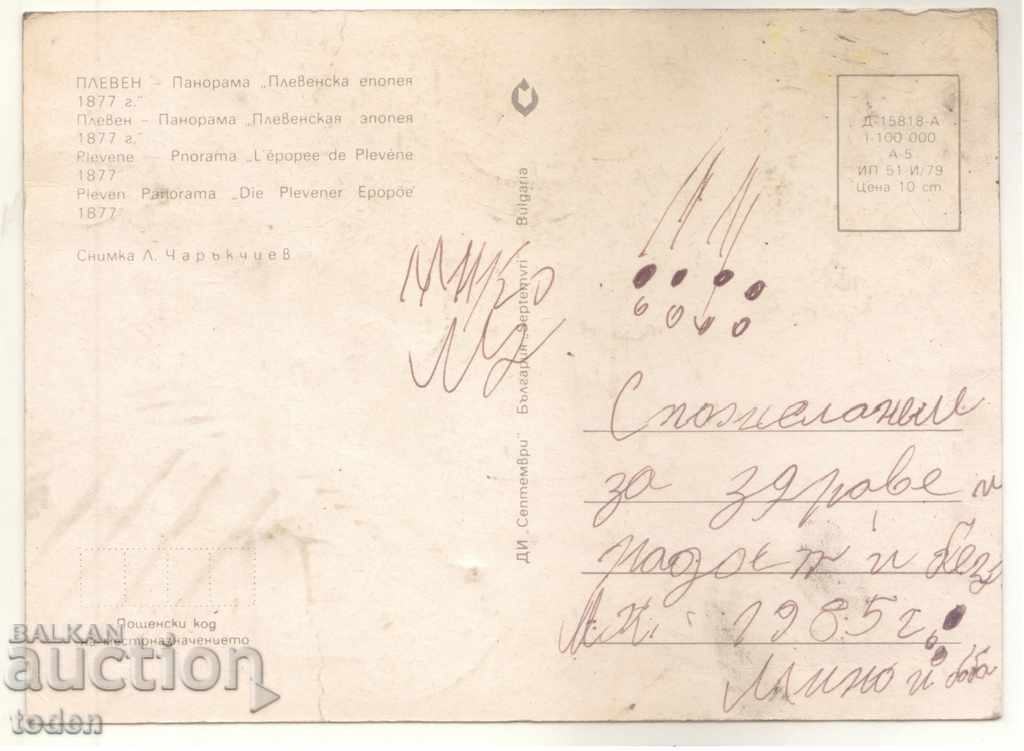 ПЛЕВЕН – Панорама „Плевенска епопея
1877 г."
Плевен – Панорама „Плевенская эпопея
1877 г."
Plevene – Pnorama „L'épopee de Plevéne
1877"
Pleven Panorama „Die Plevener Epopöe'
1877"
Снимка Л. Чаръкчиев
Пощенски код
на местоназначението
ДИ „Септември" България „Septemvri" Bulgaria
Д-15818-А
1-100 000
А-5
ИП 51-И/79
Цена 10 ст.
С пожелание
за здраве и
радост и
1985 г.
Мино и баба
BALKAN
auction
toden